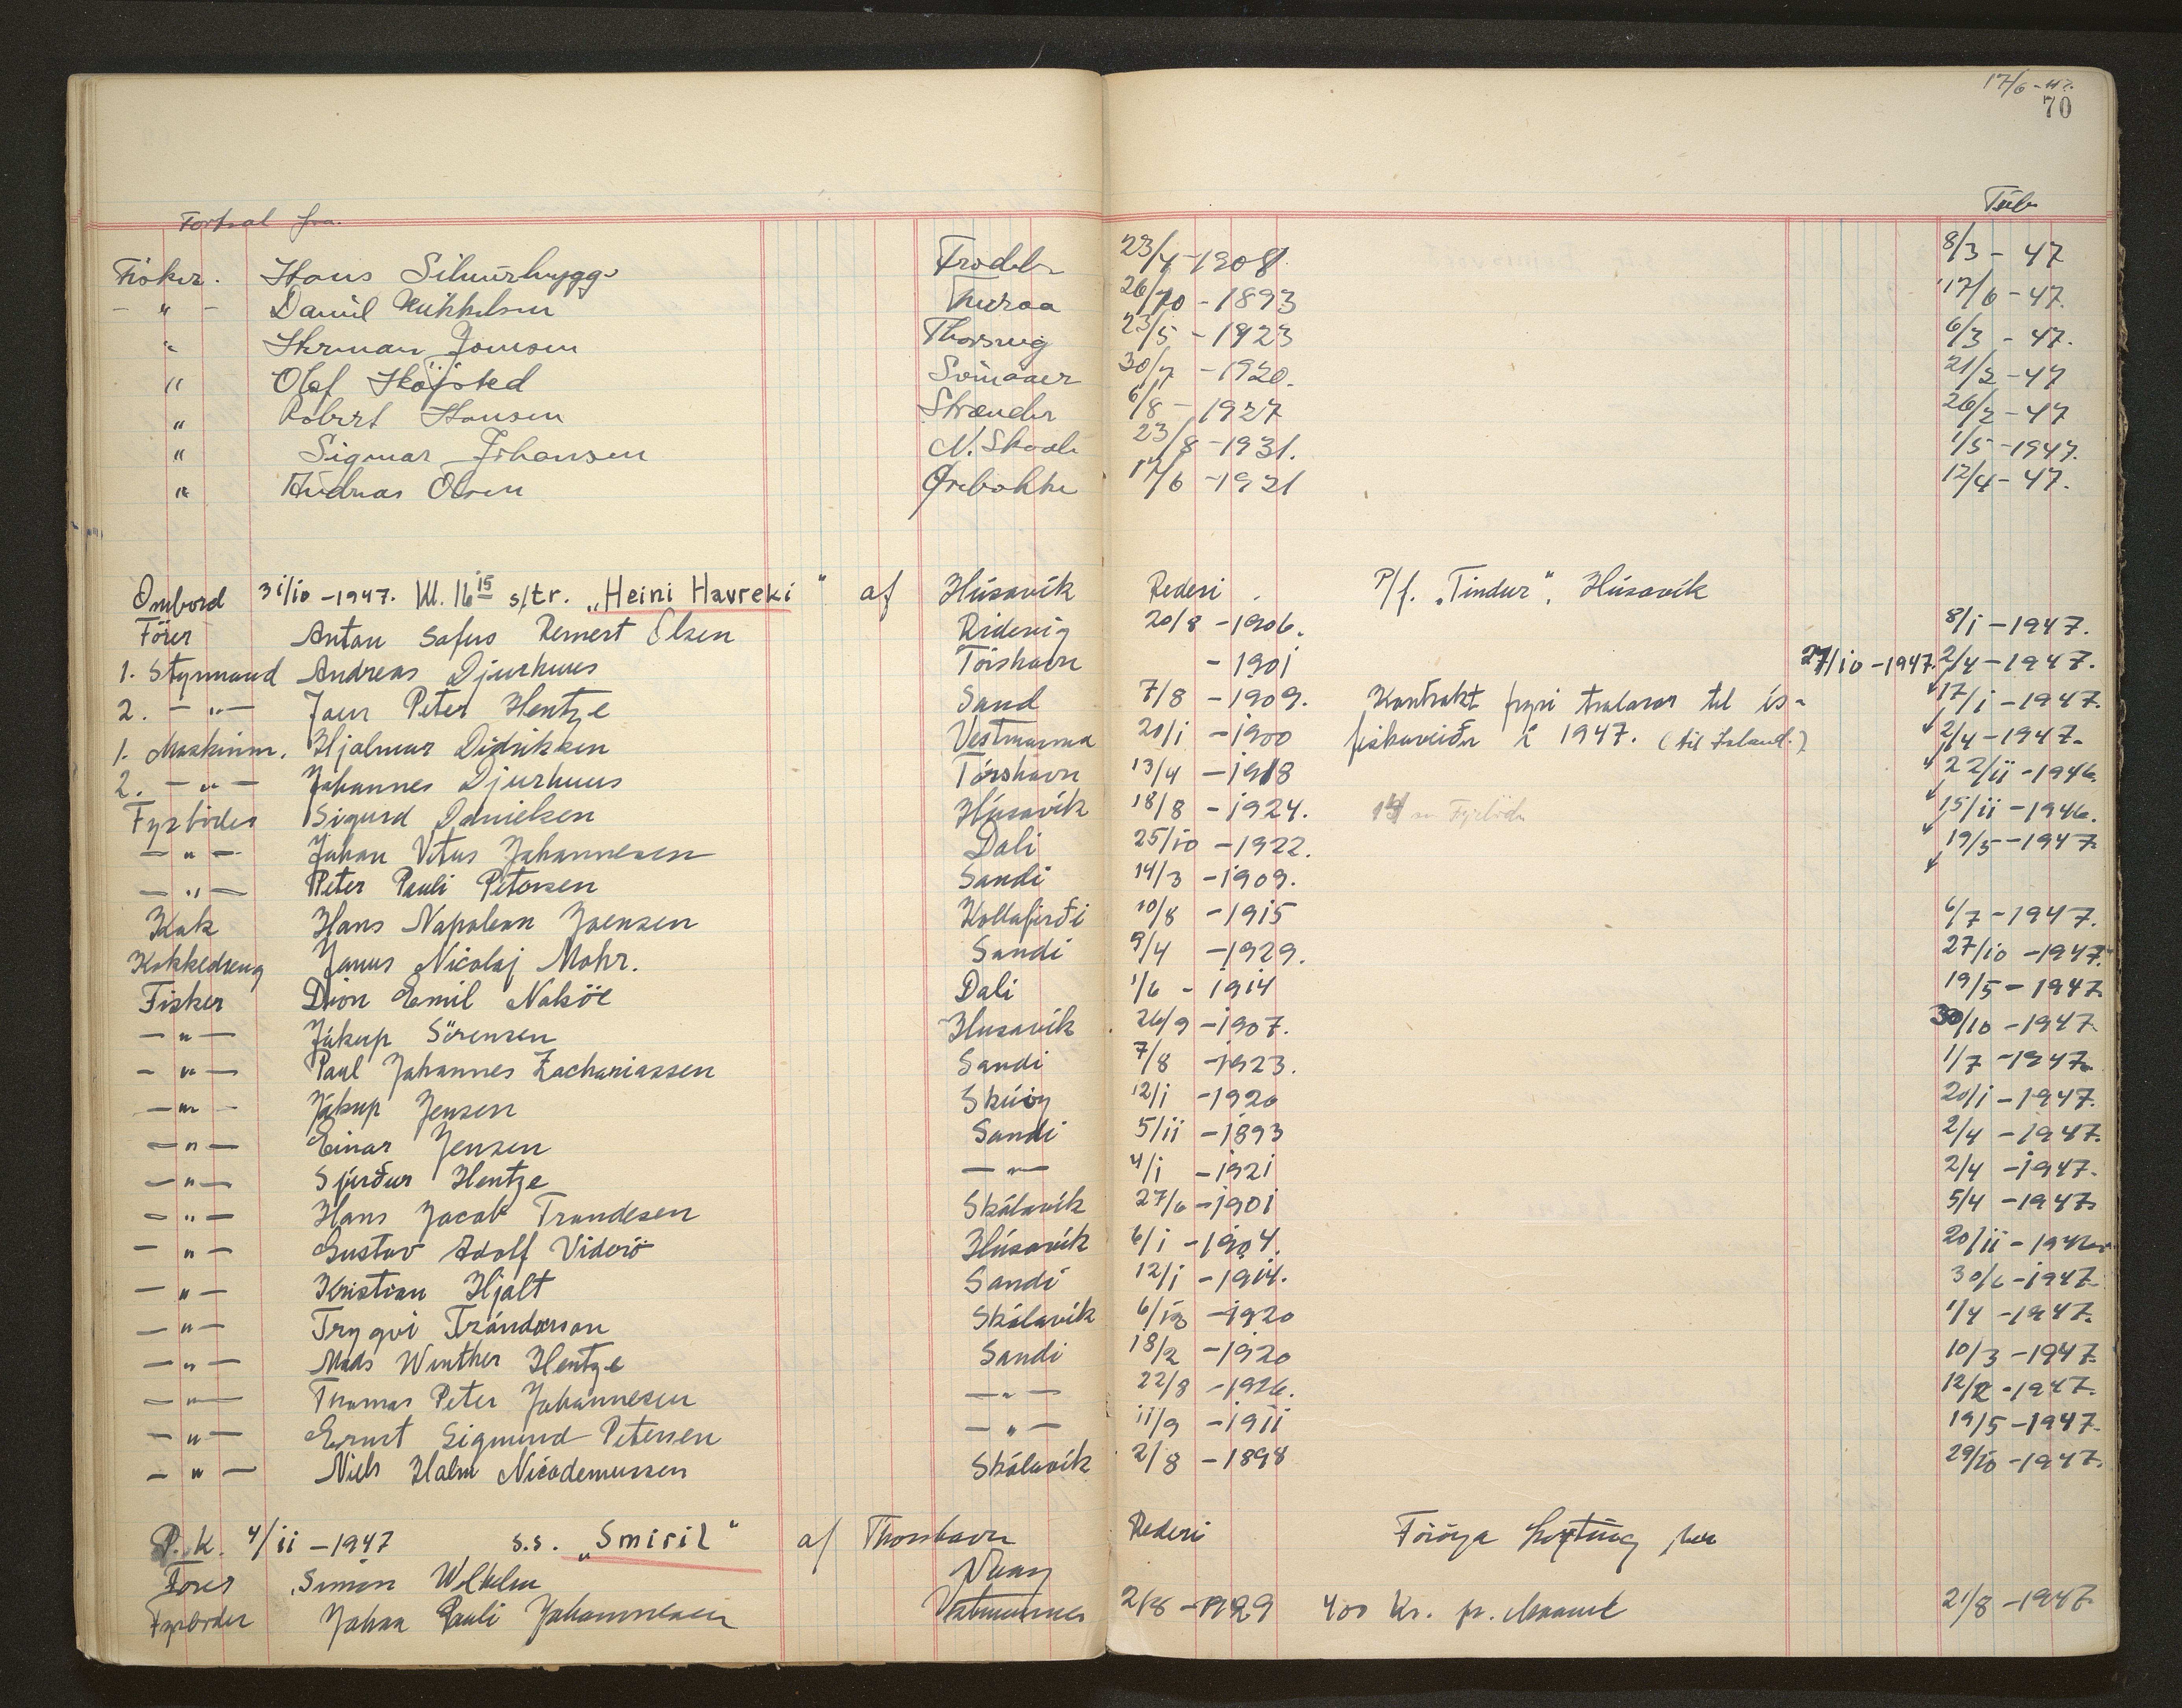 17/6-47.
70
Fortsat fra.
Tub
Fisker. Hans Frodeb 23/4-1908 8/3-47
-"- Daniel Mikkelsen 26/10-1893 17/6-47.
" Herman Joensen Thorsvig 23/5-1923 6/3-47.
" Olaf Højsted Svinaaer 30/7-1920. 21/2-47
" Robert Hansen Strænder 6/8-1927 26/2-47
" Sigmar Johansen N. Skaale 23/8-1931. 1/5-1947.
" Andreas Olsen Ørebakke 17/6-1921 12/4-47.
Ombord 31/10-1947. Kl. 16 15 s/tr. „Heini Havreki" af Húsavík Rederi P/f. „Tindur". Húsavík
Förer Anton Sofus Remert Olsen Ridevig 20/8-1906. 8/1-1947.
1. Styrmand Andreas Djurhuus Tórshavn -1901 27/10-1947. 2/4-1947.
2. -"- Joen Peter Hentze Sand 7/8-1909. Kontrakt fyri tralarar til ís- 17/1-1947.
1. Maskinm. Hjalmar Didriksen Vestmanna 20/1-1900 fiskaveiðu í 1947. (til Island.) 2/4-1947.
2. -"- Johannes Djurhuus Tórshavn 13/4-1918 22/11-1946.
Fyrböder Sigurd Danielsen Húsavík 18/8-1924. 15/11-1946.
-"- Johan Vitus Johannesen Dali 25/10-1922. 19/5-1947.
-"- Peter Pauli Petersen Sandi 14/3-1909.
Kok Hans Napoleon Joensen Kollafirði 10/8-1915 6/7-1947.
Kokkedreng Janus Nicolaj Mohr. Sandi 9/4-1929. 27/10-1947.
Fisker Dion Emil Nolsöe Dali 1/6-1914 19/5-1947.
-"- Jákup Sörensen Husavík 26/9-1907. 30/10-1947
-"- Paul Johannes Zachariassen Sandi 7/8-1923. 1/7-1947.
-"- Jákup Jensen Skúoy 12/1-1920 20/1-1947.
-"- Einar Jensen Sandi 5/11-1893 2/4-1947.
-"- Sjúrður Hentze -"- 4/1-1921 2/4-1947.
-"- Hans Jacob Trondesen Skálavík 27/6-1901 5/4-1947.
-"- Gustav Adolf Viderö Húsavík 6/1-1904. 20/11-1946.
-"- Kristian Hjalt Sandi 12/1-1914. 30/6-1947.
-"- Trygvi Trándarson Skálavík -1920 1/4-1947.
-"- Mads Winther Hentze Sandi 18/2-1920 10/3-1947.
-"- Thomas Peter Johannesen -"- 22/8-1926. 12/2-1947.
-"- Ernst Sigmund Petersen -"- 11/9-1911 19/5-1947.
-"- Niels Holm Nicodemussen Skálavík 2/8-1898 29/10-1947.
P.k. 4/11-1947 s.s. „Smiril" af Thorshavn Rederi Föroya
Förer Simon Vaag
Fyrböder Johan Pauli Johannesen Vestmannes -1929 400 Kr. pr. Maaned 21/8-1947.